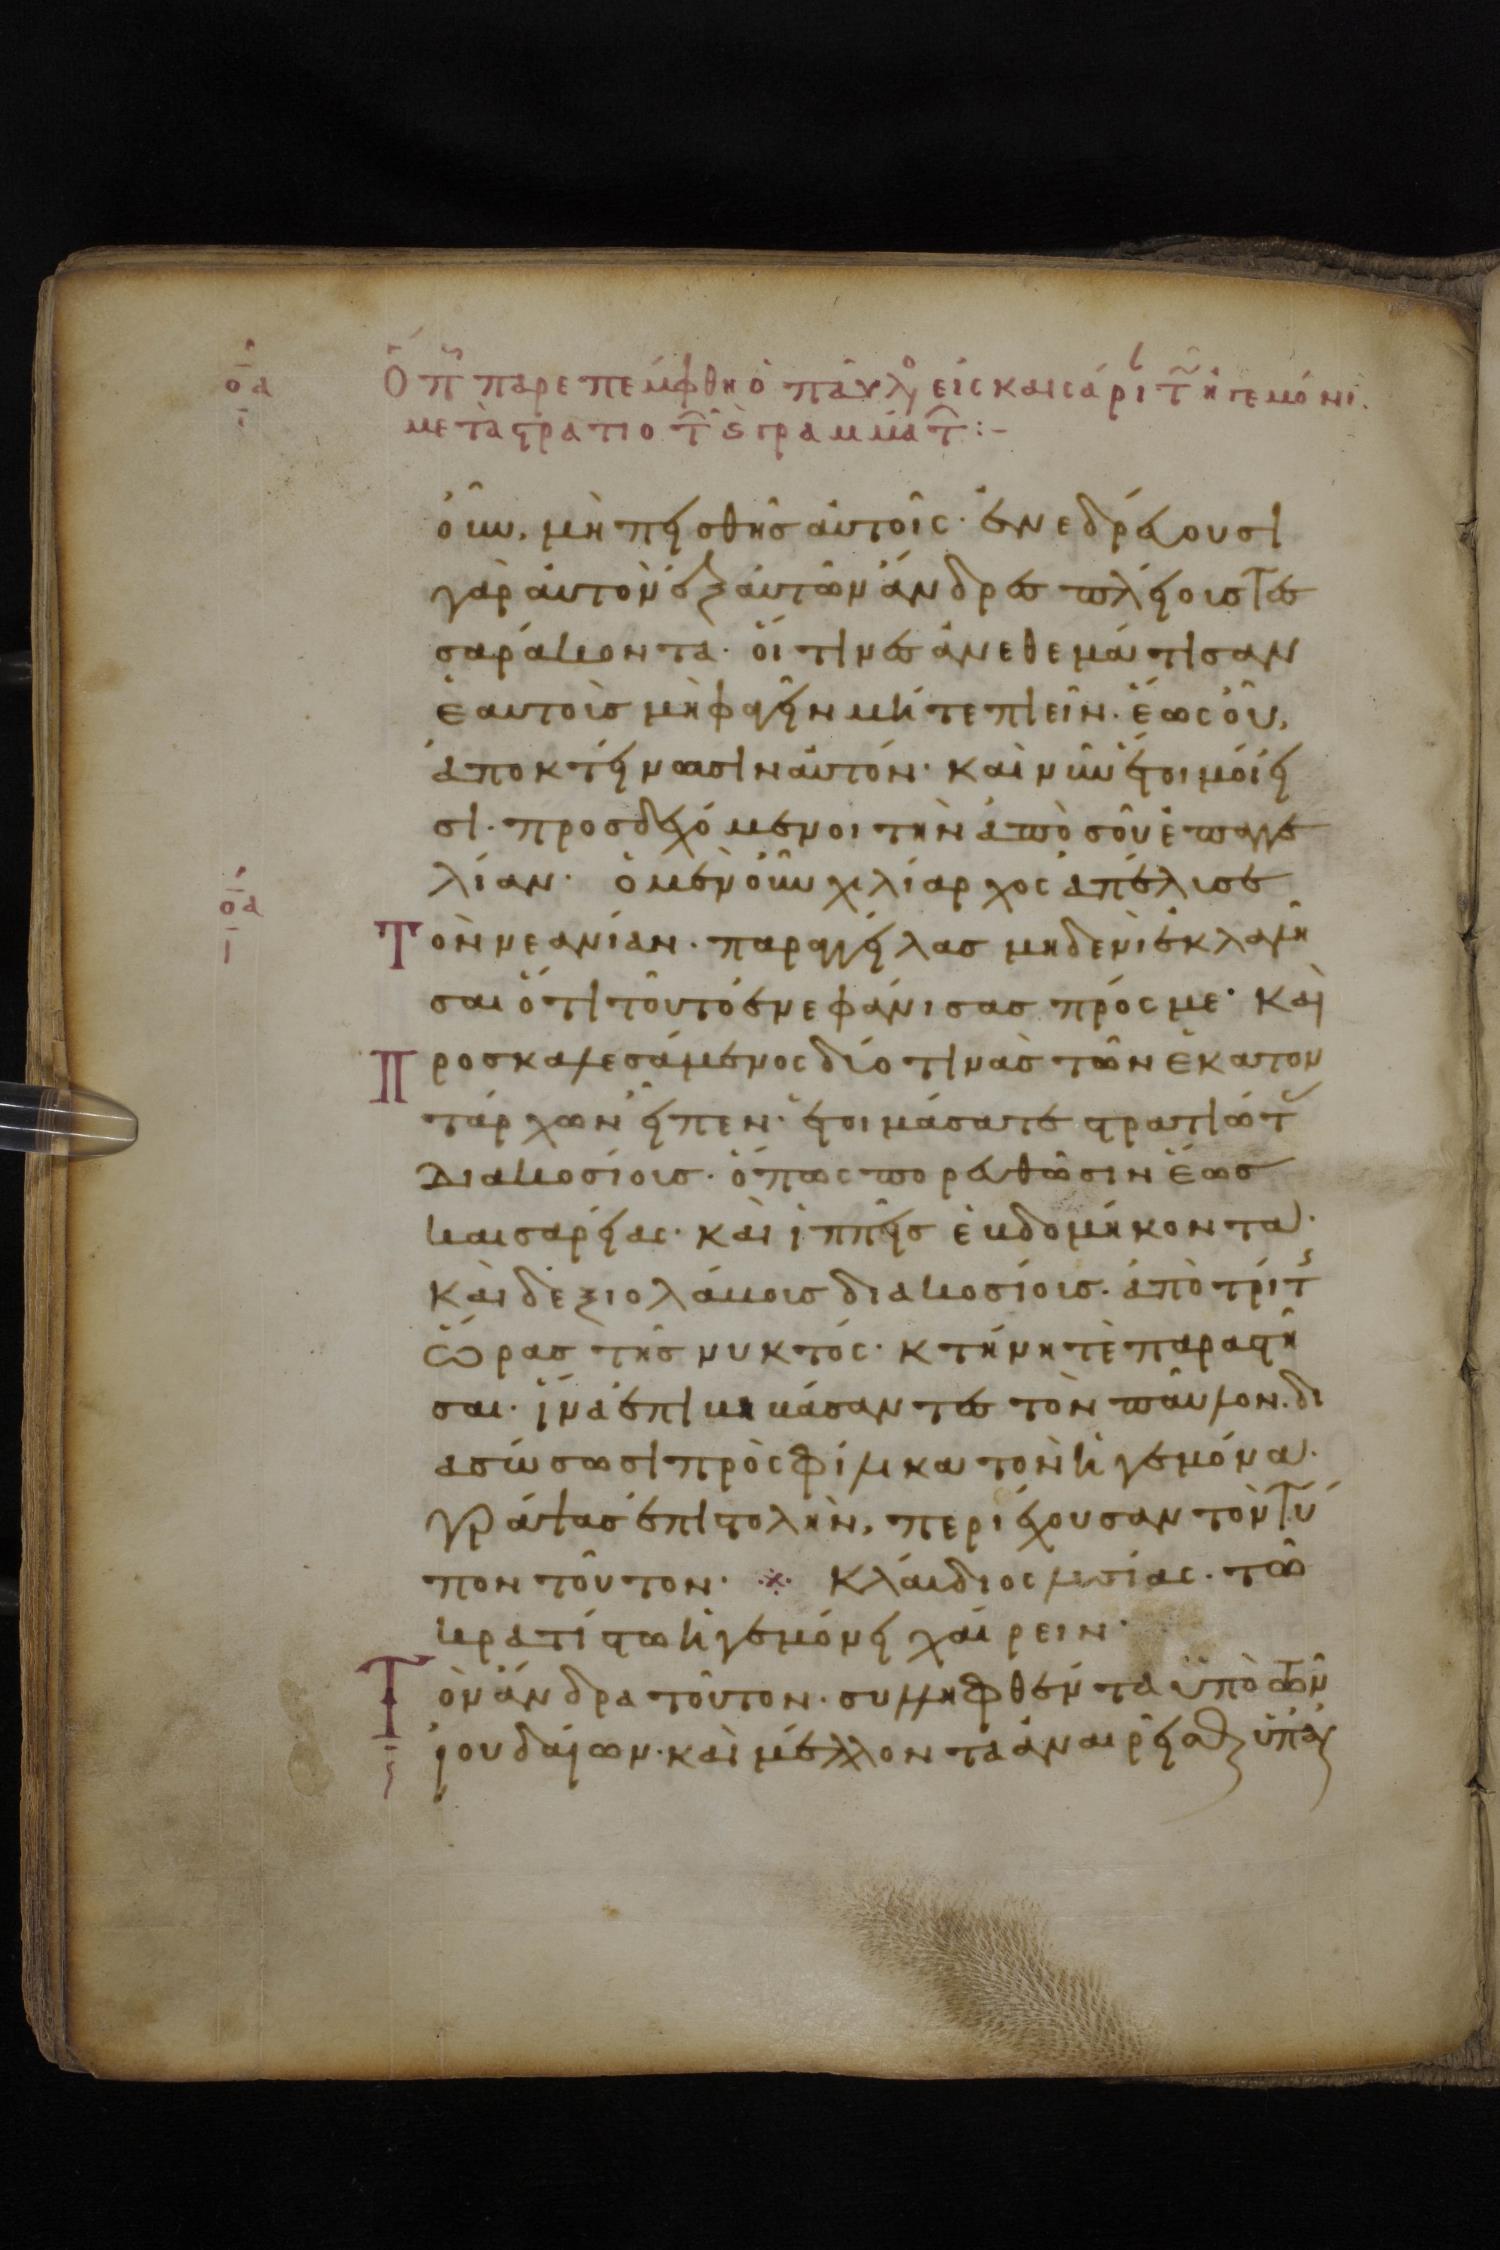 ο̄α
ῑ
Ὅπ παρεπέμφθη ὁ παῦλο εἰς καισάρι τ ἡγεμόνι.
μετὰ στρατιοτ ϛ γραμμάτ:-
οὖν, μὴ πεισθῆσ αὐτοῖς· ἐνεδρέυουσι
γὰρ αὐτὸν ἐξ αὐτῶν ἄνδρεσ πλείουσ τεσ
σαράκοντα· οἵτινεσ ἀνεθεμάτισαν
ἑαυτοὺσ μὴ φαγεῖν μήτε πιεῖν· ἕως οὗ,
ἀποκτείνωσιν αὐτόν· καὶ νῦν ἕτοιμόί εἰ
σι· προσδεχόμενοι τὴν ἀπὸ σοῦ ἐπαγγε
λίαν· ὁ μὲν οὖν χιλίαρχος ἀπέλυσε
ο̄α
ῑ
Τὸν νεανίαν· παραγγείλασ μηδενὶ ἐκλαλῆ
σαι ὅτι τοῦτό ἐνεφάνισασ πρός με· καὶ
Προσκαλεσάμενος δύο τινὰσ τῶν ἑκατον
τάρχων εἶπεν· ἑτοιμάσατε στρατιώτ
διακοσίουσ· ὅπως πορευθῶσιν ἕωσ
καισαρείας· καὶ ἱππεῖσ ἑβδομήκοντα·
καὶ δεξιολάβουσ διακοσίουσ· ἀπὸ τρίτ
ὥρασ τῆσ νυκτός· κτήνη τὲ παραστῆ
σαι· ἵνα ἐπιβιβάσαντεσ τὸν παῦλον· δι
ασώσωσι πρὸς φίλικα τὸν ἡγεμόνα·
γράψασ ἐπιστολὴν, περιέχουσαν τὸν τύ
πον τοῦτον· κλάυδιος λυσίας· τῶ
κρατίστω ἡγεμόνει χαίρειν·
Τὸν ἄνδρα τοῦτον· συλληφθέντα ὑπὸ τῶν
ἰουδαίων· καὶ μέλλοντα ἀναιρεῖσθαι ὑπ' αυ